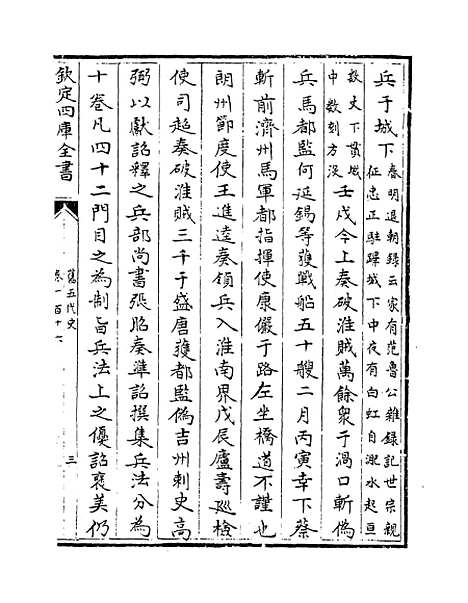 兵于城下春明退朝録云家有范魯公雜録記世宗親征忠正駐蹕城下中夜有白虹自淝水起亘
數丈下貫城中數刻方没壬戌今上奏破淮賊萬餘衆于渦口斬僞
兵馬都監何延錫等獲戰船五十艘二月丙寅幸下蔡
斬前濟州馬軍都指揮使康儼于路左坐橋道不謹也
朗州節度使王進逵奏領兵入淮南界戊辰廬壽巡檢
使司超奏破淮賊三千于盛唐獲都監僞吉州刺史高
弼以獻詔釋之兵部尚書張昭奏準詔撰集兵法分為
十卷凡四十二門目之為制旨兵法上之優詔褒美仍
欽定四庫全書
舊五代史
卷一百十六
三